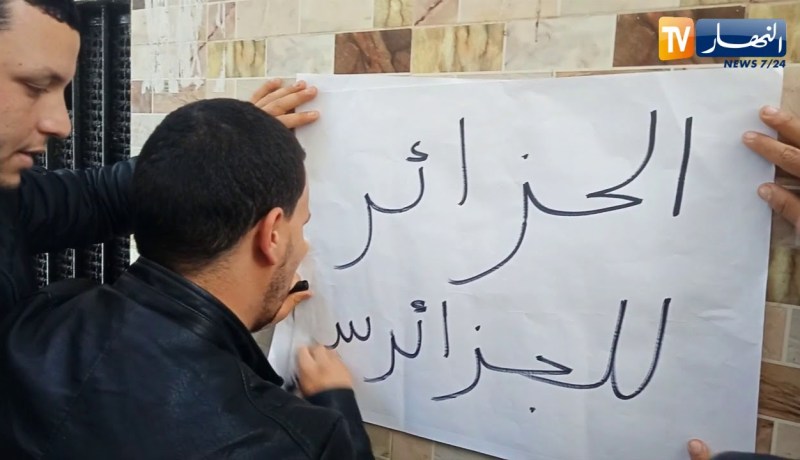 النهار TV
NEWS 7/24
الحزائر
للجزائر